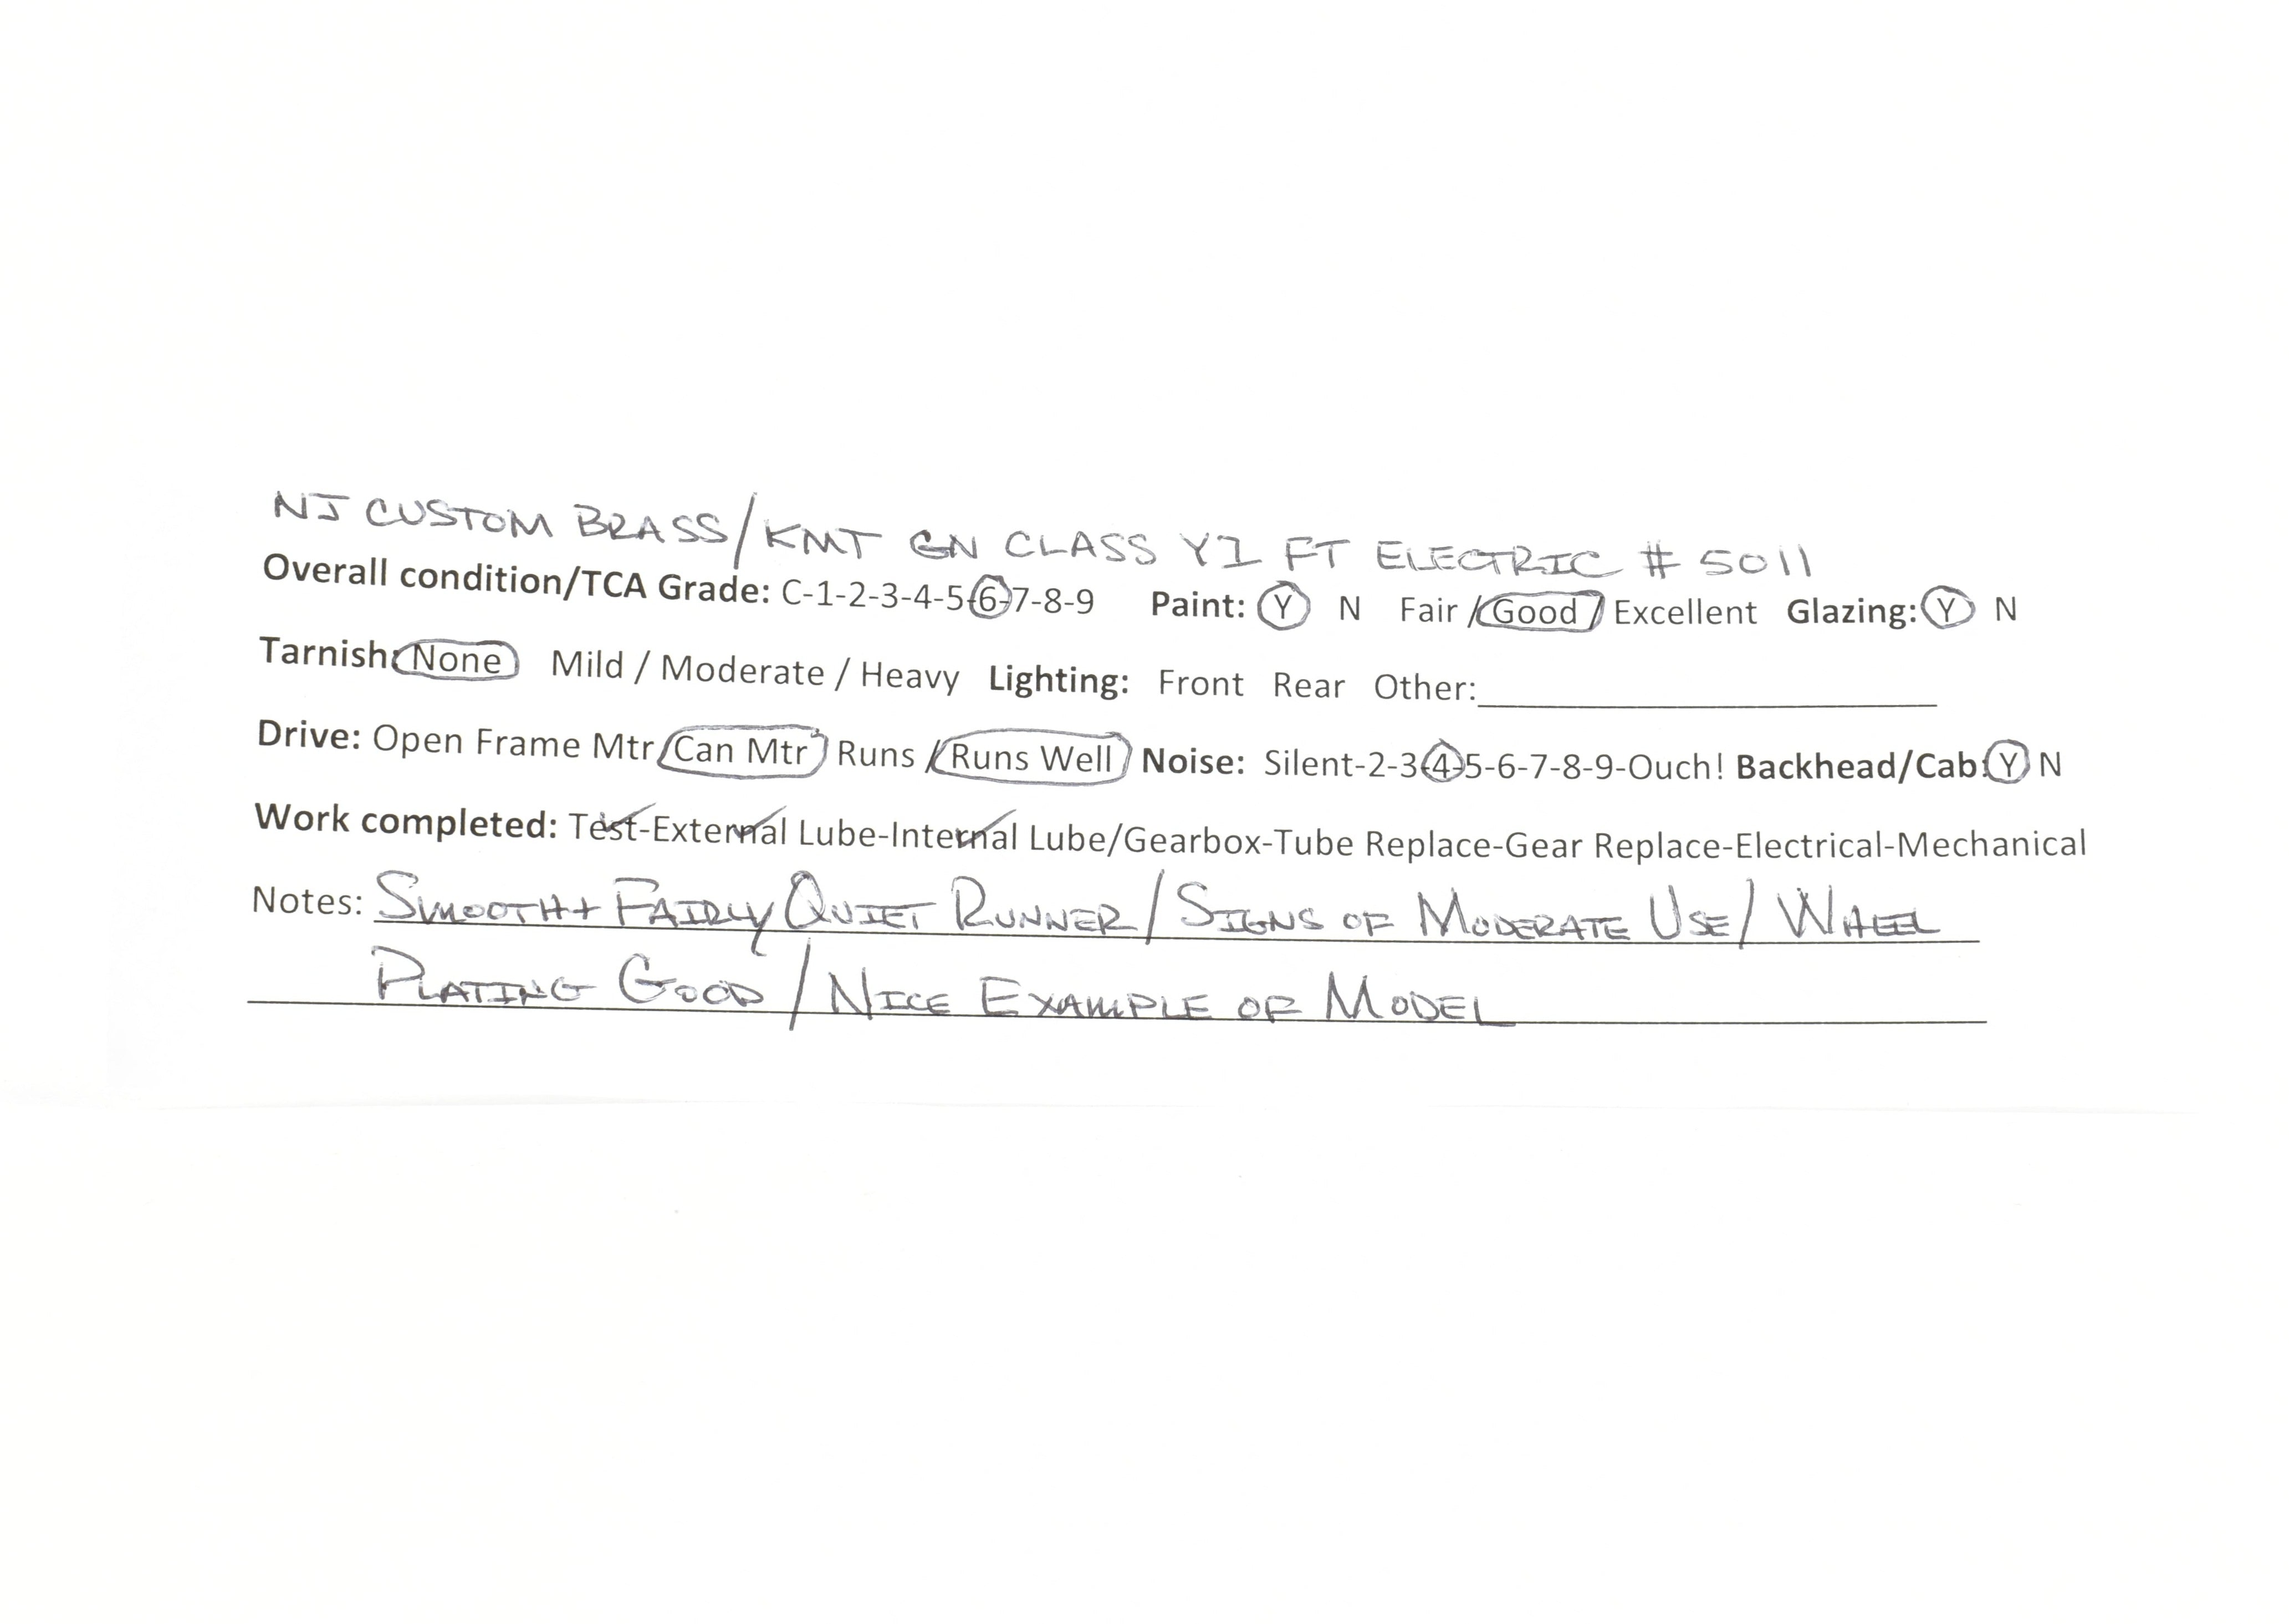 NJ CUSTOM BRASS/KMT GN CLASS Y1 FT ELECTRIC # 5011
Overall condition/TCA Grade: C-1-2-3-4-5-6-7-8-9 Paint: Y N Fair / Good / Excellent Glazing: Y N
Tarnish: None Mild / Moderate / Heavy Lighting: Front Rear Other:
Drive: Open Frame Mtr/Can Mtr Runs / Runs Well Noise: Silent-2-3-4-5-6-7-8-9-Ouch! Backhead/Cab: Y N
Work completed: Test-External Lube-Internal Lube/Gearbox-Tube Replace-Gear Replace-Electrical-Mechanical
Notes: SMOOTH + FAIRLY QUIET RUNNER / SIGNS OF MODERATE USE / WHEEL
PLATING GOOD / NICE EXAMPLE OF MODEL